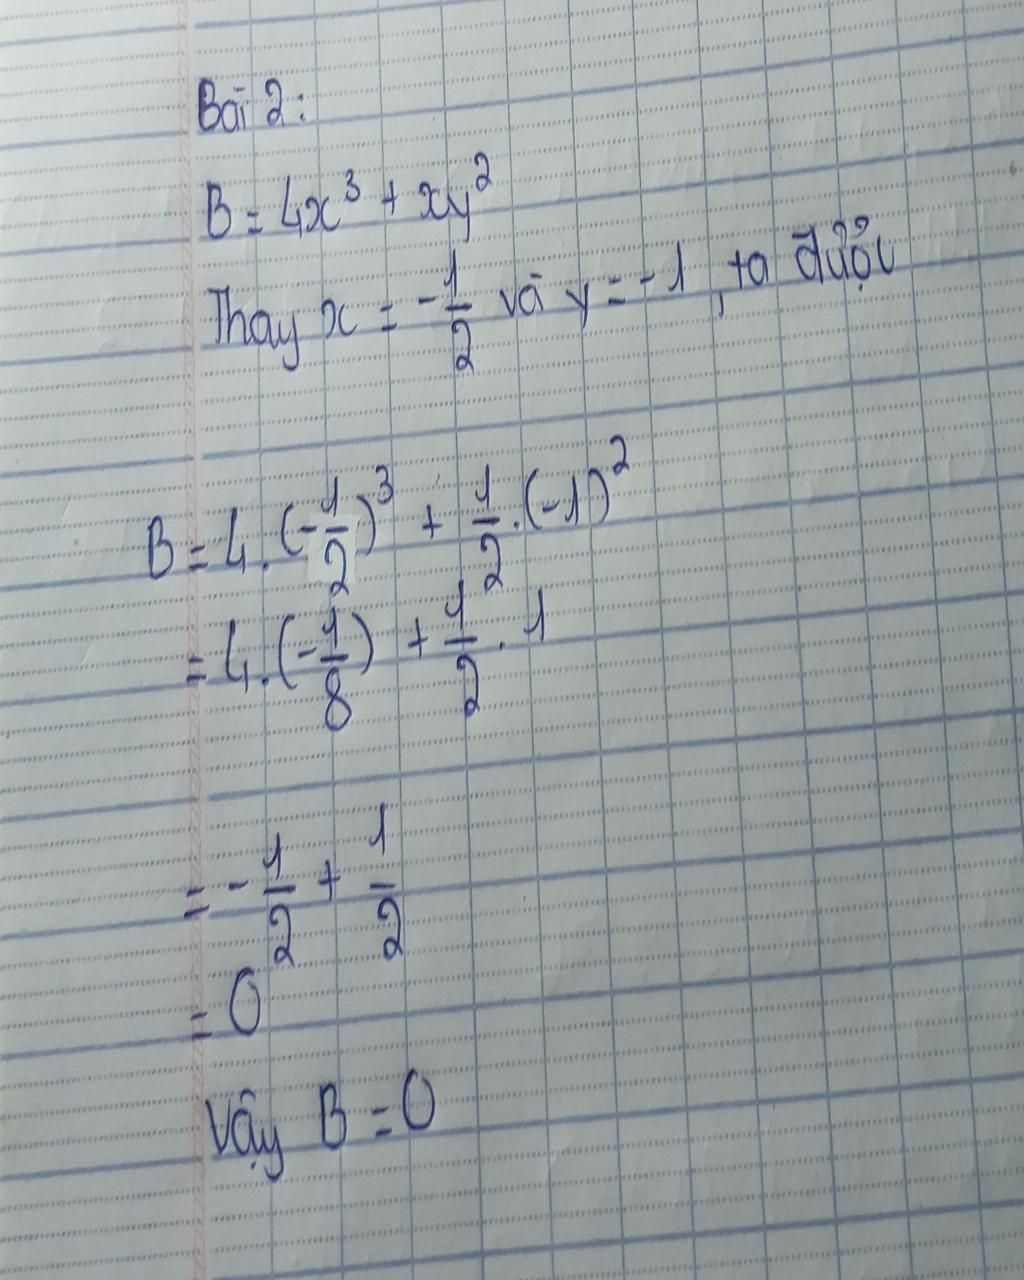 Bài 2:
B = 4x³ + xy²
Thay x = -1/2 và y = -1, ta được
B = 4.(-1/2)³ + 1/2.(-1)²
= 4.(-1/8) + 1/2.1
= -1/2 + 1/2
= 0
Vậy B = 0